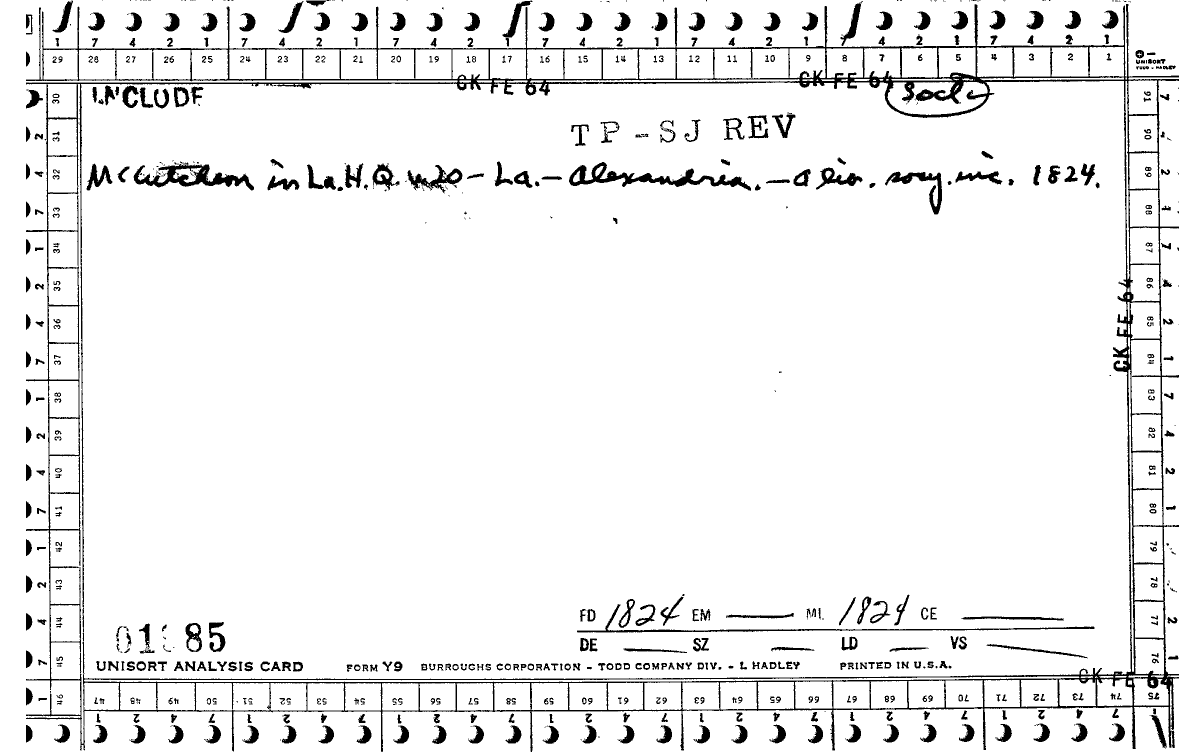 1 7 4 2 1 7 4 2 1 7 4 2 1 7 4 2 1 7 4 2 1 7 4 2 1 7 4 2 1
29 28 27 26 25 24 23 22 21 20 19 18 17 16 15 14 13 12 11 10 9 8 7 6 5 4 3 2 1
UNISORT
TODD - HADLEY
CK FE 64 CK FE 64
INCLUDE Socl
TP-SJ REV
McCutcheon in La. H. Q. v20 - La. - Alexandria. - a lior. socy. inc. 1824.
30 31 32 33 34 35 36 37 38 39 40 41 42 43 44 45 46
2 4 7 1 2 4 7 1 2 4 7 1 2 4 7 1
91 90 89 88 87 86 85 84 83 82 81 80 79 78 77 76 75
CK FE 64
FD 1824 EM — ML 1824 CE —
DE — SZ — LD — VS —
85
UNISORT ANALYSIS CARD FORM Y9 BURROUGHS CORPORATION - TODD COMPANY DIV. - L HADLEY PRINTED IN U.S.A.
CK FE 64
47 48 49 50 51 52 53 54 55 56 57 58 59 60 61 62 63 64 65 66 67 68 69 70 71 72 73 74
1 2 4 7 1 2 4 7 1 2 4 7 1 2 4 7 1 2 4 7 1 2 4 7 1 2 4 7